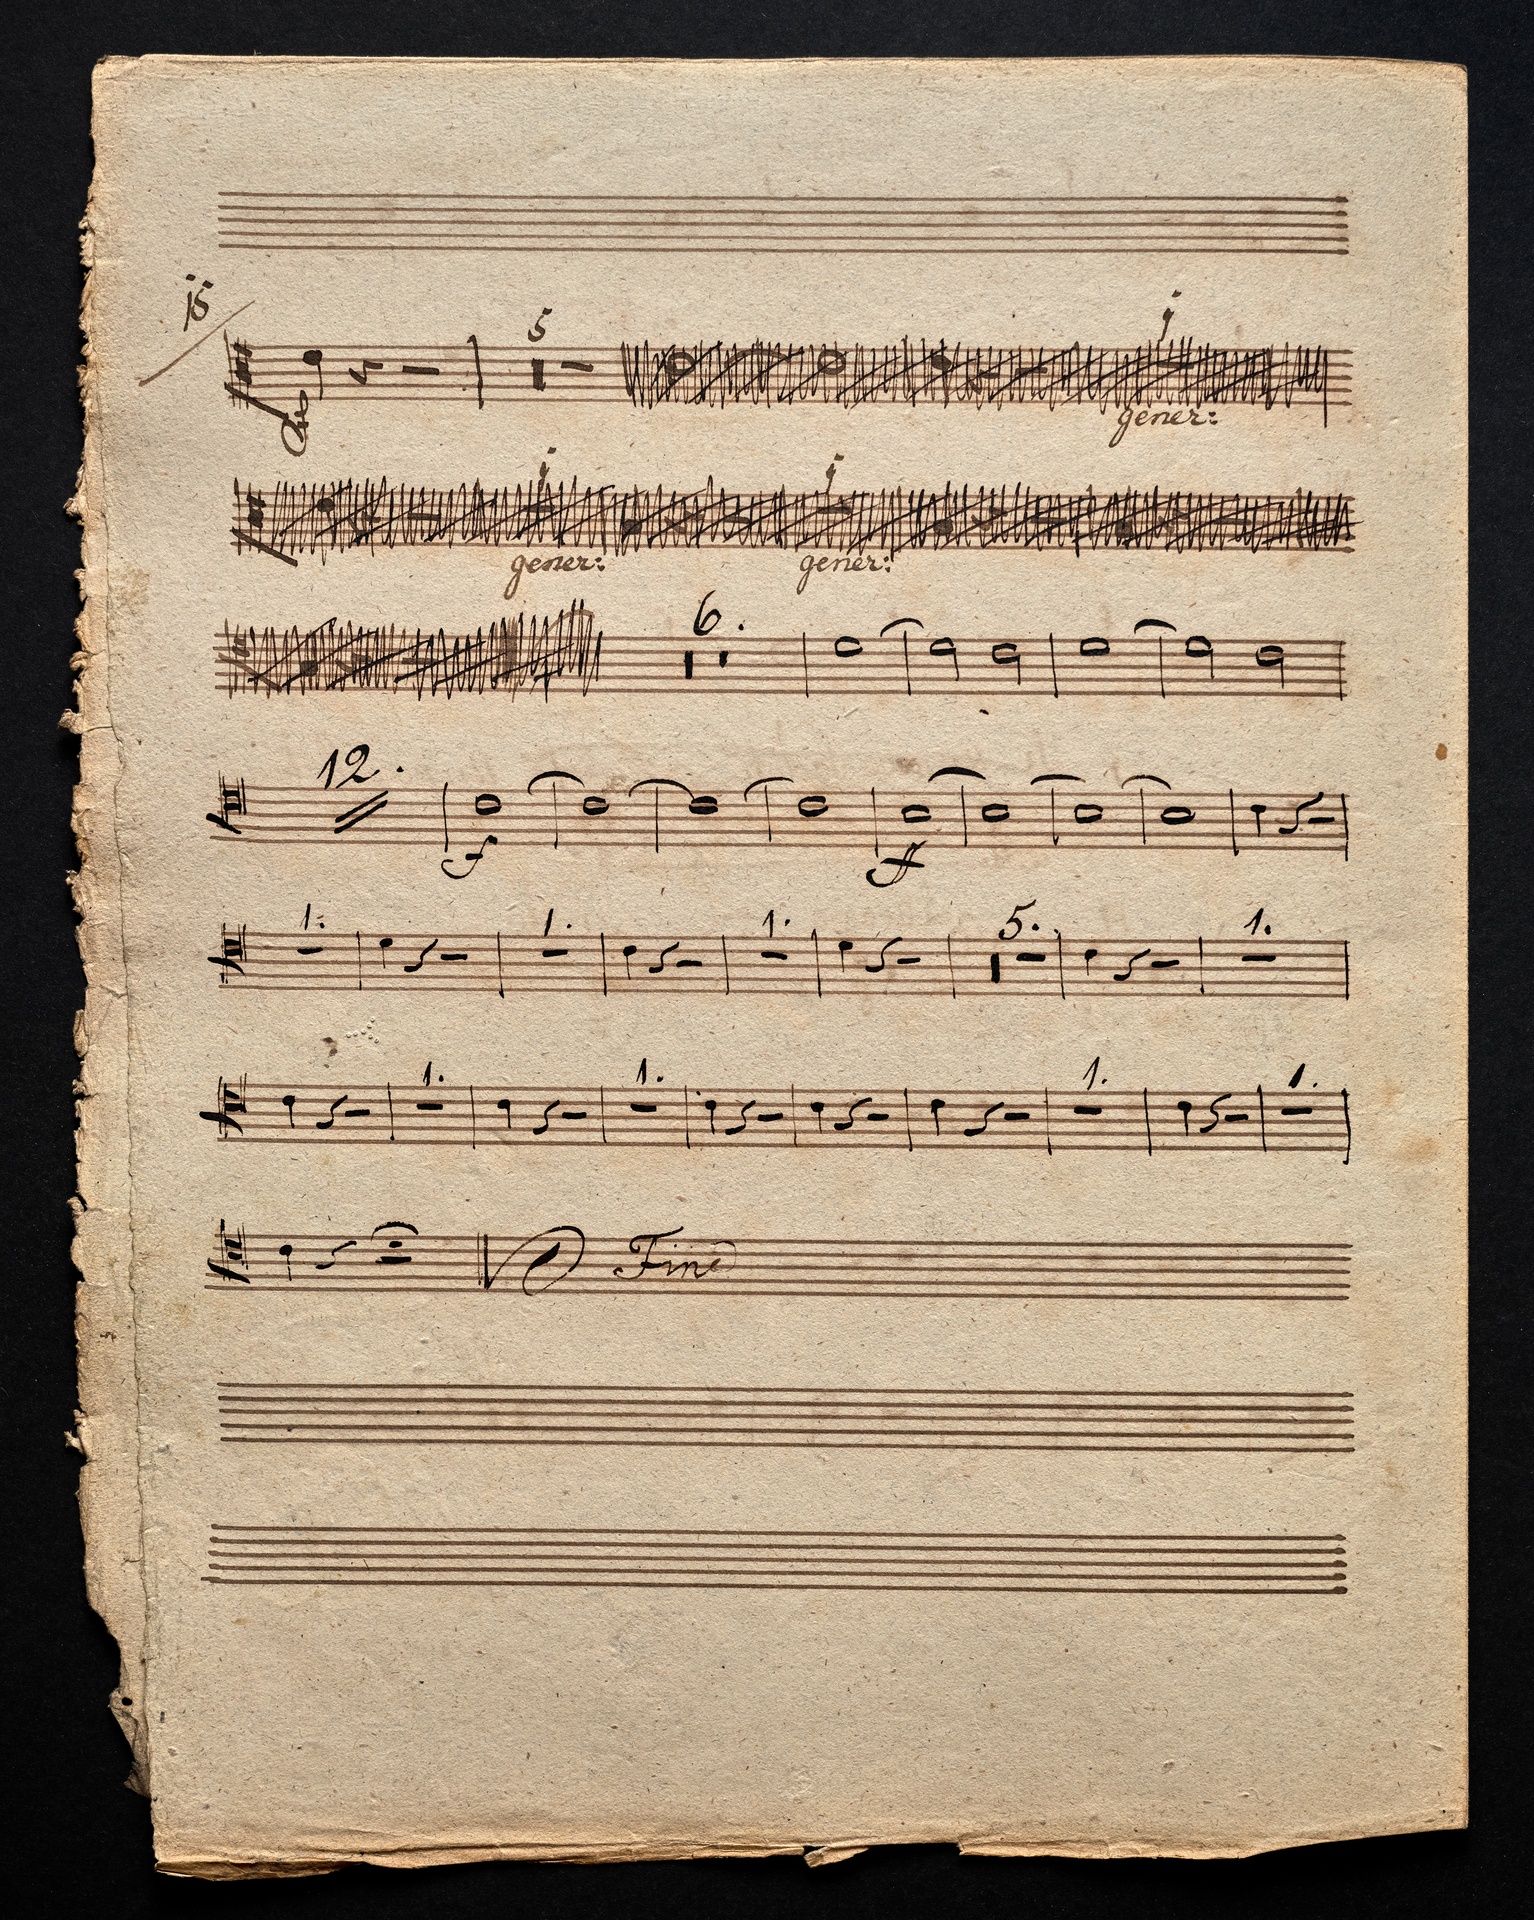 15
5
i
gener:
i i
gener: gener:
6.
12.
f ff
1. 1. 1. 5. 1.
1. 1. 1. 1.
Fine